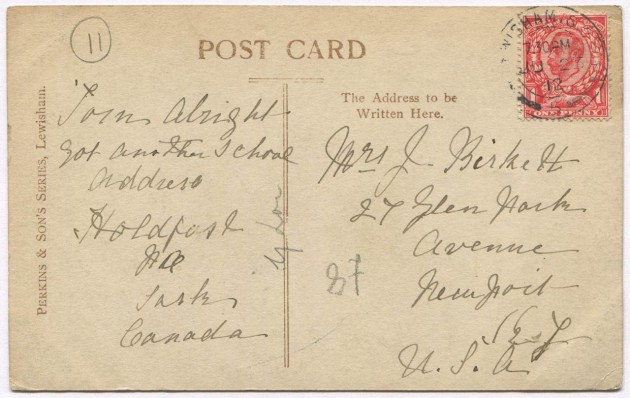 11
POST CARD
WISHAM.S
7.30AM
12
ONE PENNY
PERKINS & SON'S SERIES, Lewisham.
Tom Alright
got another School
Address
Holdfast
Sask
Canada
The Address to be
Written Here.
Mrs J Birkett
27 Glen Park
Avenue
Newport
Ky
U.S.A
87